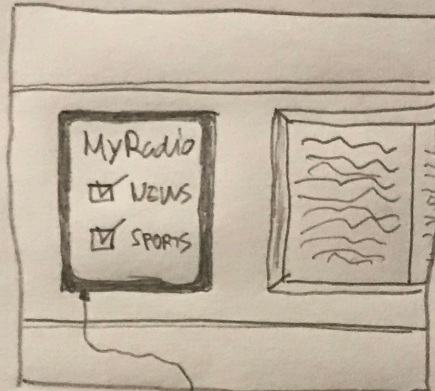 MyRadio
NEWS
SPORTS